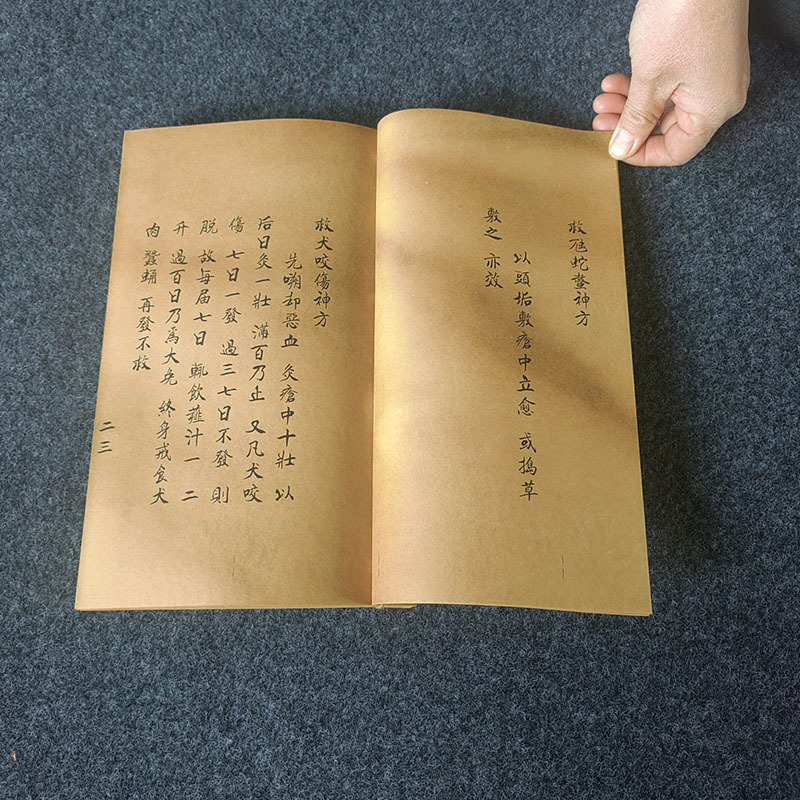 救虺蛇螫神方
以頭垢敷瘡中立愈 或搗草
敷之 亦效
救犬咬傷神方
先嗍却惡血 灸瘡中十壯 以
后日灸一壯 滿百乃止 又凡犬咬
傷 七日一發 過三七日不發 則
脱 故每届七日 輒飲薤汁一 二
升 過百日乃爲大免 終身戒食犬
肉 蠶蛹 再發不救
二三